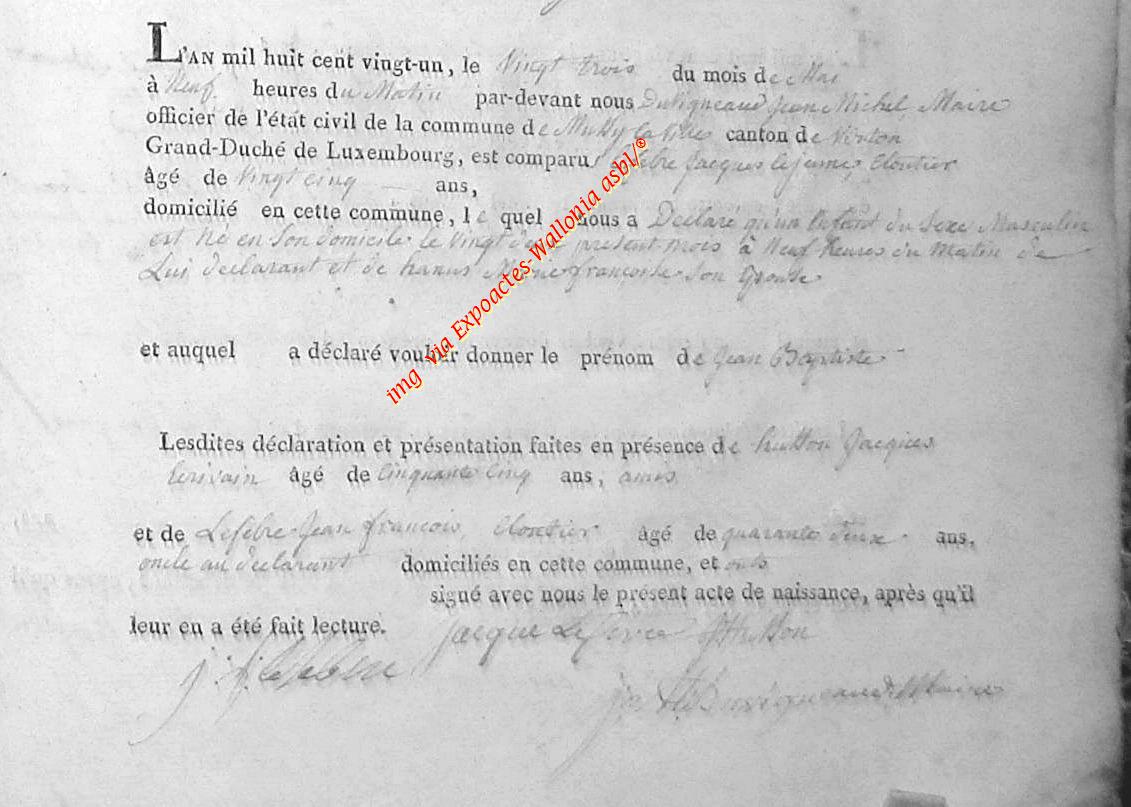 L'AN mil huit cent vingt-un, le Vingt trois du mois de Mai
à Neuf heures du Matin par-devant nous Duvigneaud Jean Michel, Maire
officier de l'état civil de la commune de Mussy la Ville canton de Virton
Grand-Duché de Luxembourg, est comparu Lefebre Jacques le jeune, Cloutier
âgé de Vingt cinq ans,
domicilié en cette commune, le quel nous a Declaré qu'un Enfant du Sexe Masculin
est né en Son domicile le Vingt présent mois à Neuf heures du Matin de
Lui declarant et de hanus françoise Son Epouse
et auquel a déclaré vouloir donner le prénom de Jean Baptiste
Lesdites déclaration et présentation faites en présence de hutton Jacques
Ecrivain âgé de Cinquante Cinq ans, amis
et de Lefebre Jean françois, Cloutier âgé de quarante deux ans,
oncle au declarant domiciliés en cette commune, et ont
signé avec nous le présent acte de naissance, après qu'il
leur en a été fait lecture. Jacque Lefevre Hutton
Duvigneaud Maire
img via Expoactes-Wallonia asbl/®